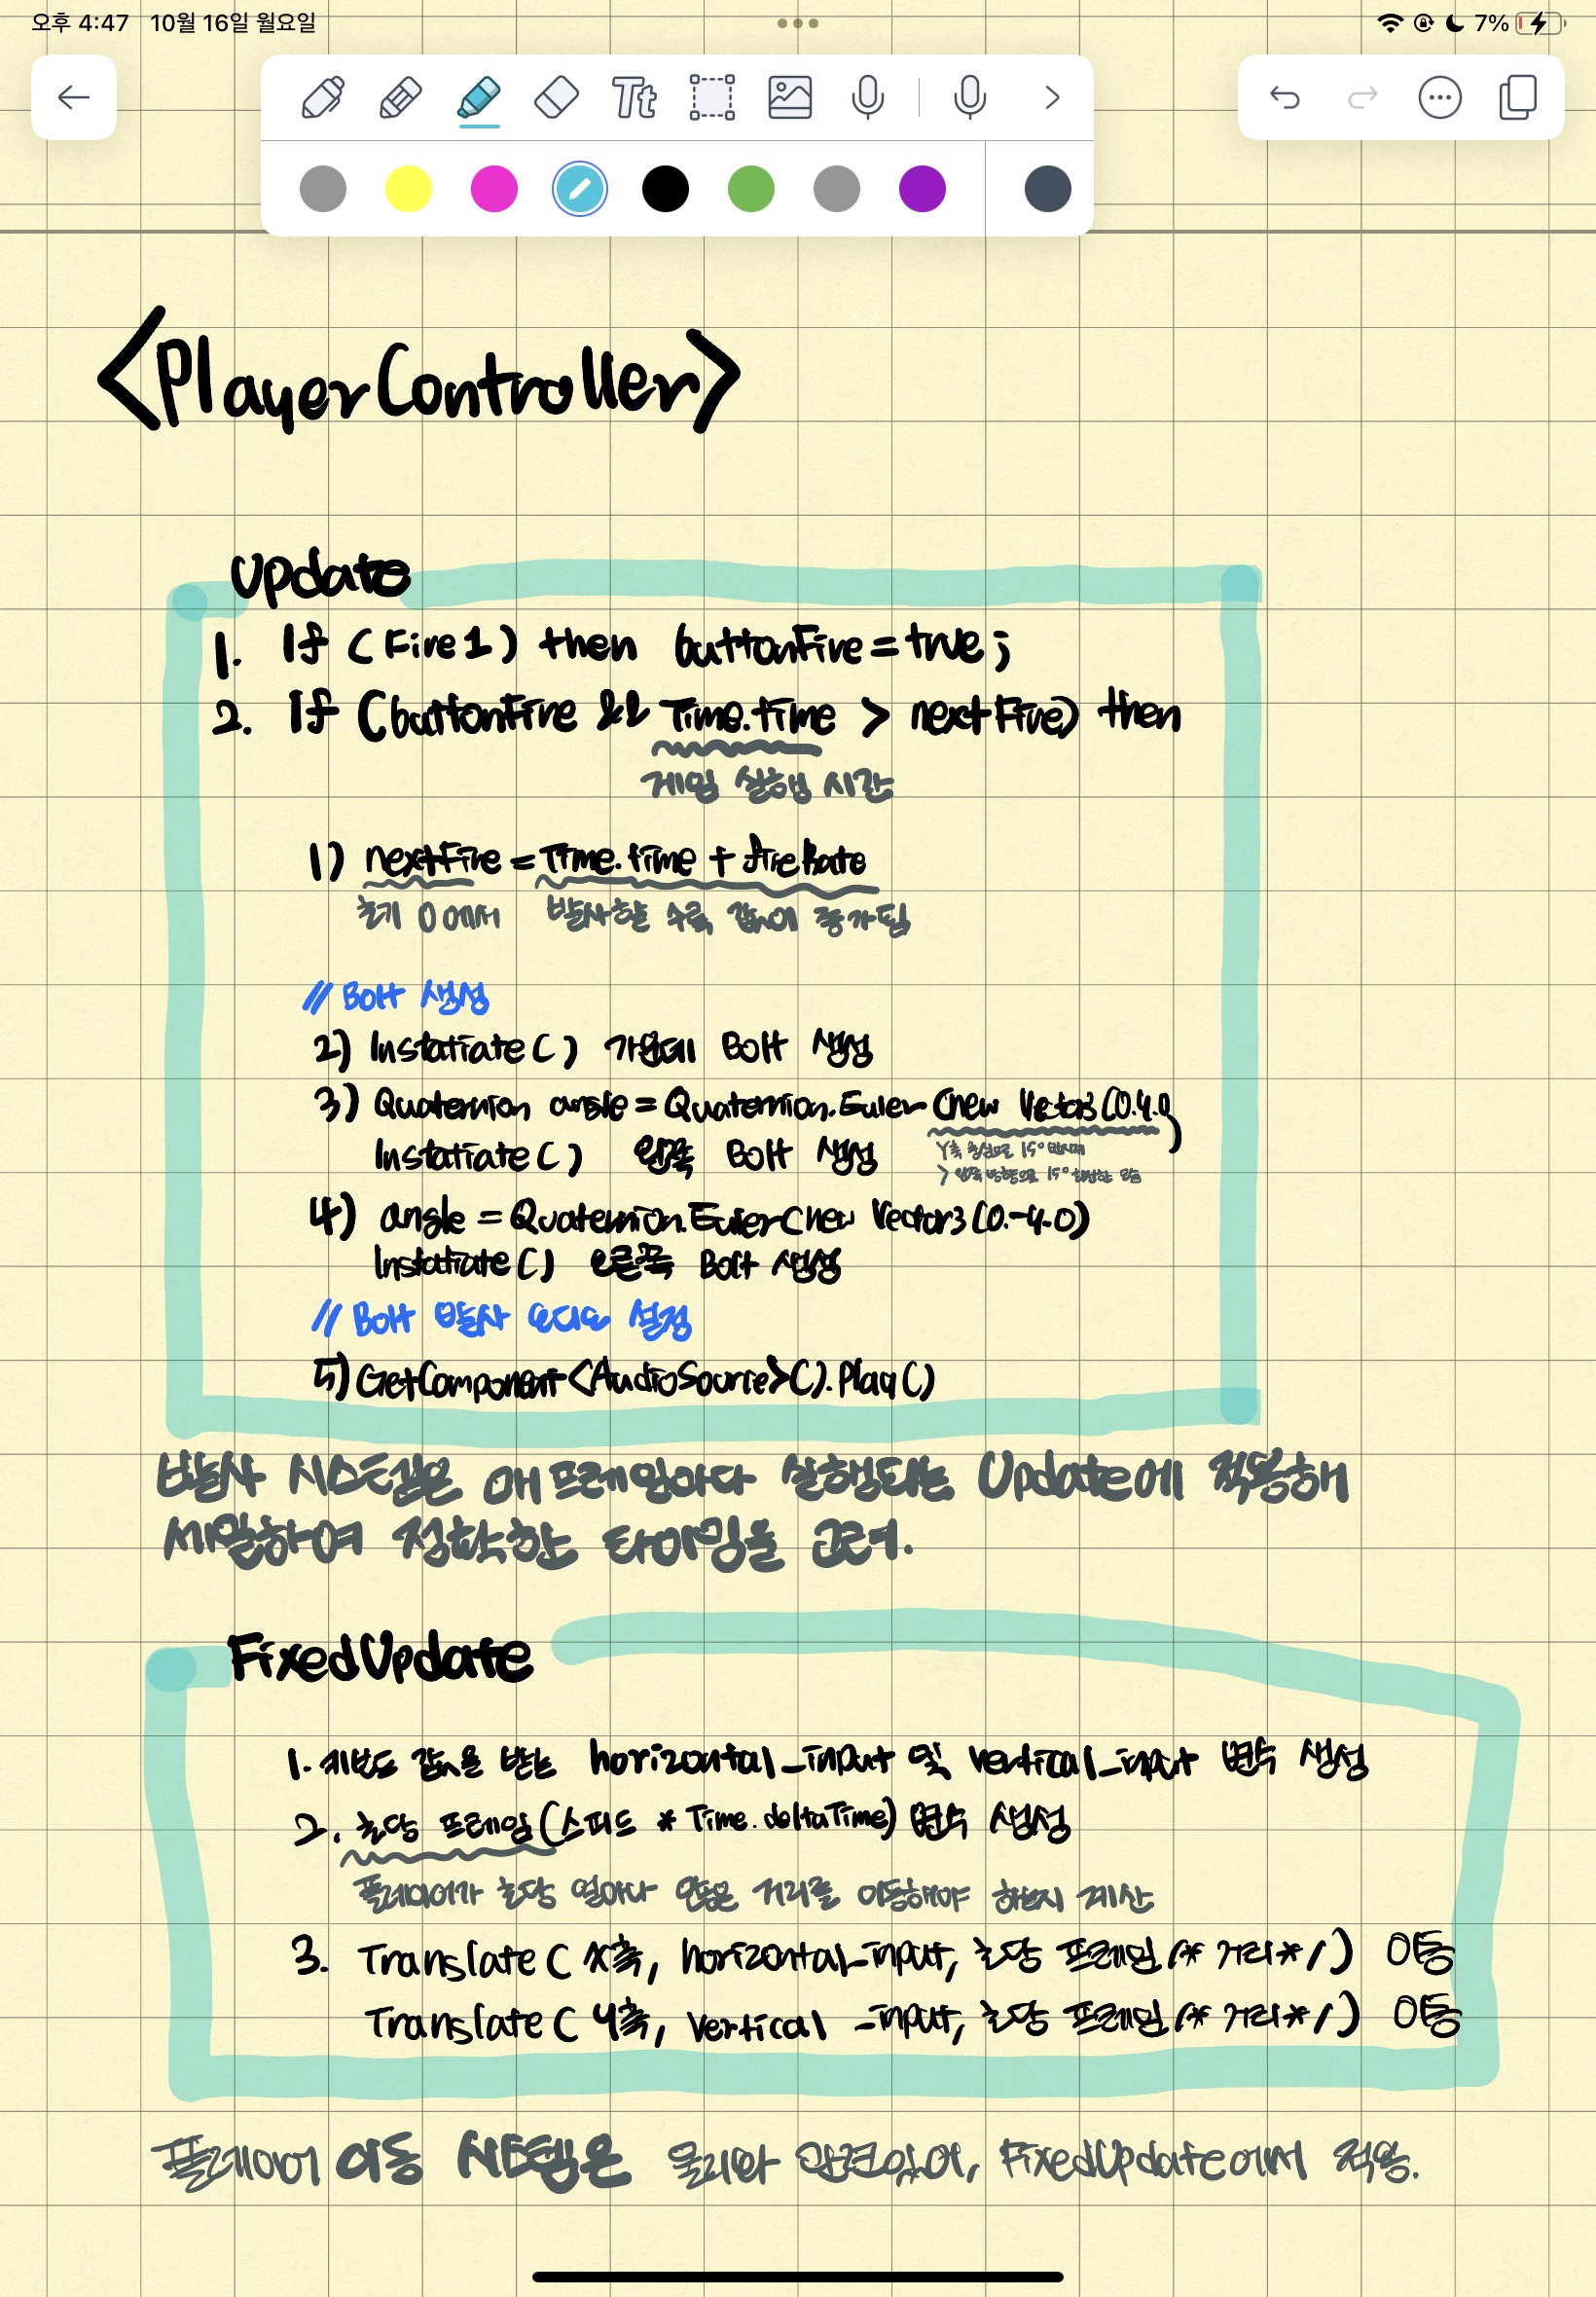 오후 4:47 10월 16일 월요일
7%
Tt
<PlayerController>
Update
1. If (Fire1) then buttonFire = true;
2. If (buttonFire && Time.time > nextFire) then
게임 실행 시간
1) nextFire = Time.time + fireRate
초기 0에서 발사할 수록 값이 증가됨
// Bolt 생성
2) Instatiate() 가운데 Bolt 생성
3) Quaternion angle = Quaternion.Euler(new Vector3(0.4.0)
Instatiate() 왼쪽 Bolt 생성
Y축 중심으로 15°
> 왼쪽 방향으로 15° 회전한 모습
4) angle = Quaternion.Euler(new Vector3(0.-4.0)
Instatiate() 오른쪽 Bolt 생성
// Bolt 발사 오디오 설정
5) GetComponent<AudioSource>().Play()
발사 시스템은 매 프레임마다 실행되는 Update에 적용해
세밀하여 정확한 타이밍을 고려.
FixedUpdate
1. 키보드 값을 받는 horizontal_input 및 vertical_input 변수 생성
2. 초당 프레임(스피드 * Time.deltaTime) 변수 생성
플레이어가 초당 얼마나 많은 거리를 이동해야 하는지 계산
3. Translate ( X축, horizontal_input, 초당 프레임/*거리*/) 이동
Translate ( Y축, vertical_input, 초당 프레임/*거리*/) 이동
플레이어 이동 시스템은 물리와 연관있어, FixedUpdate에서 적용.